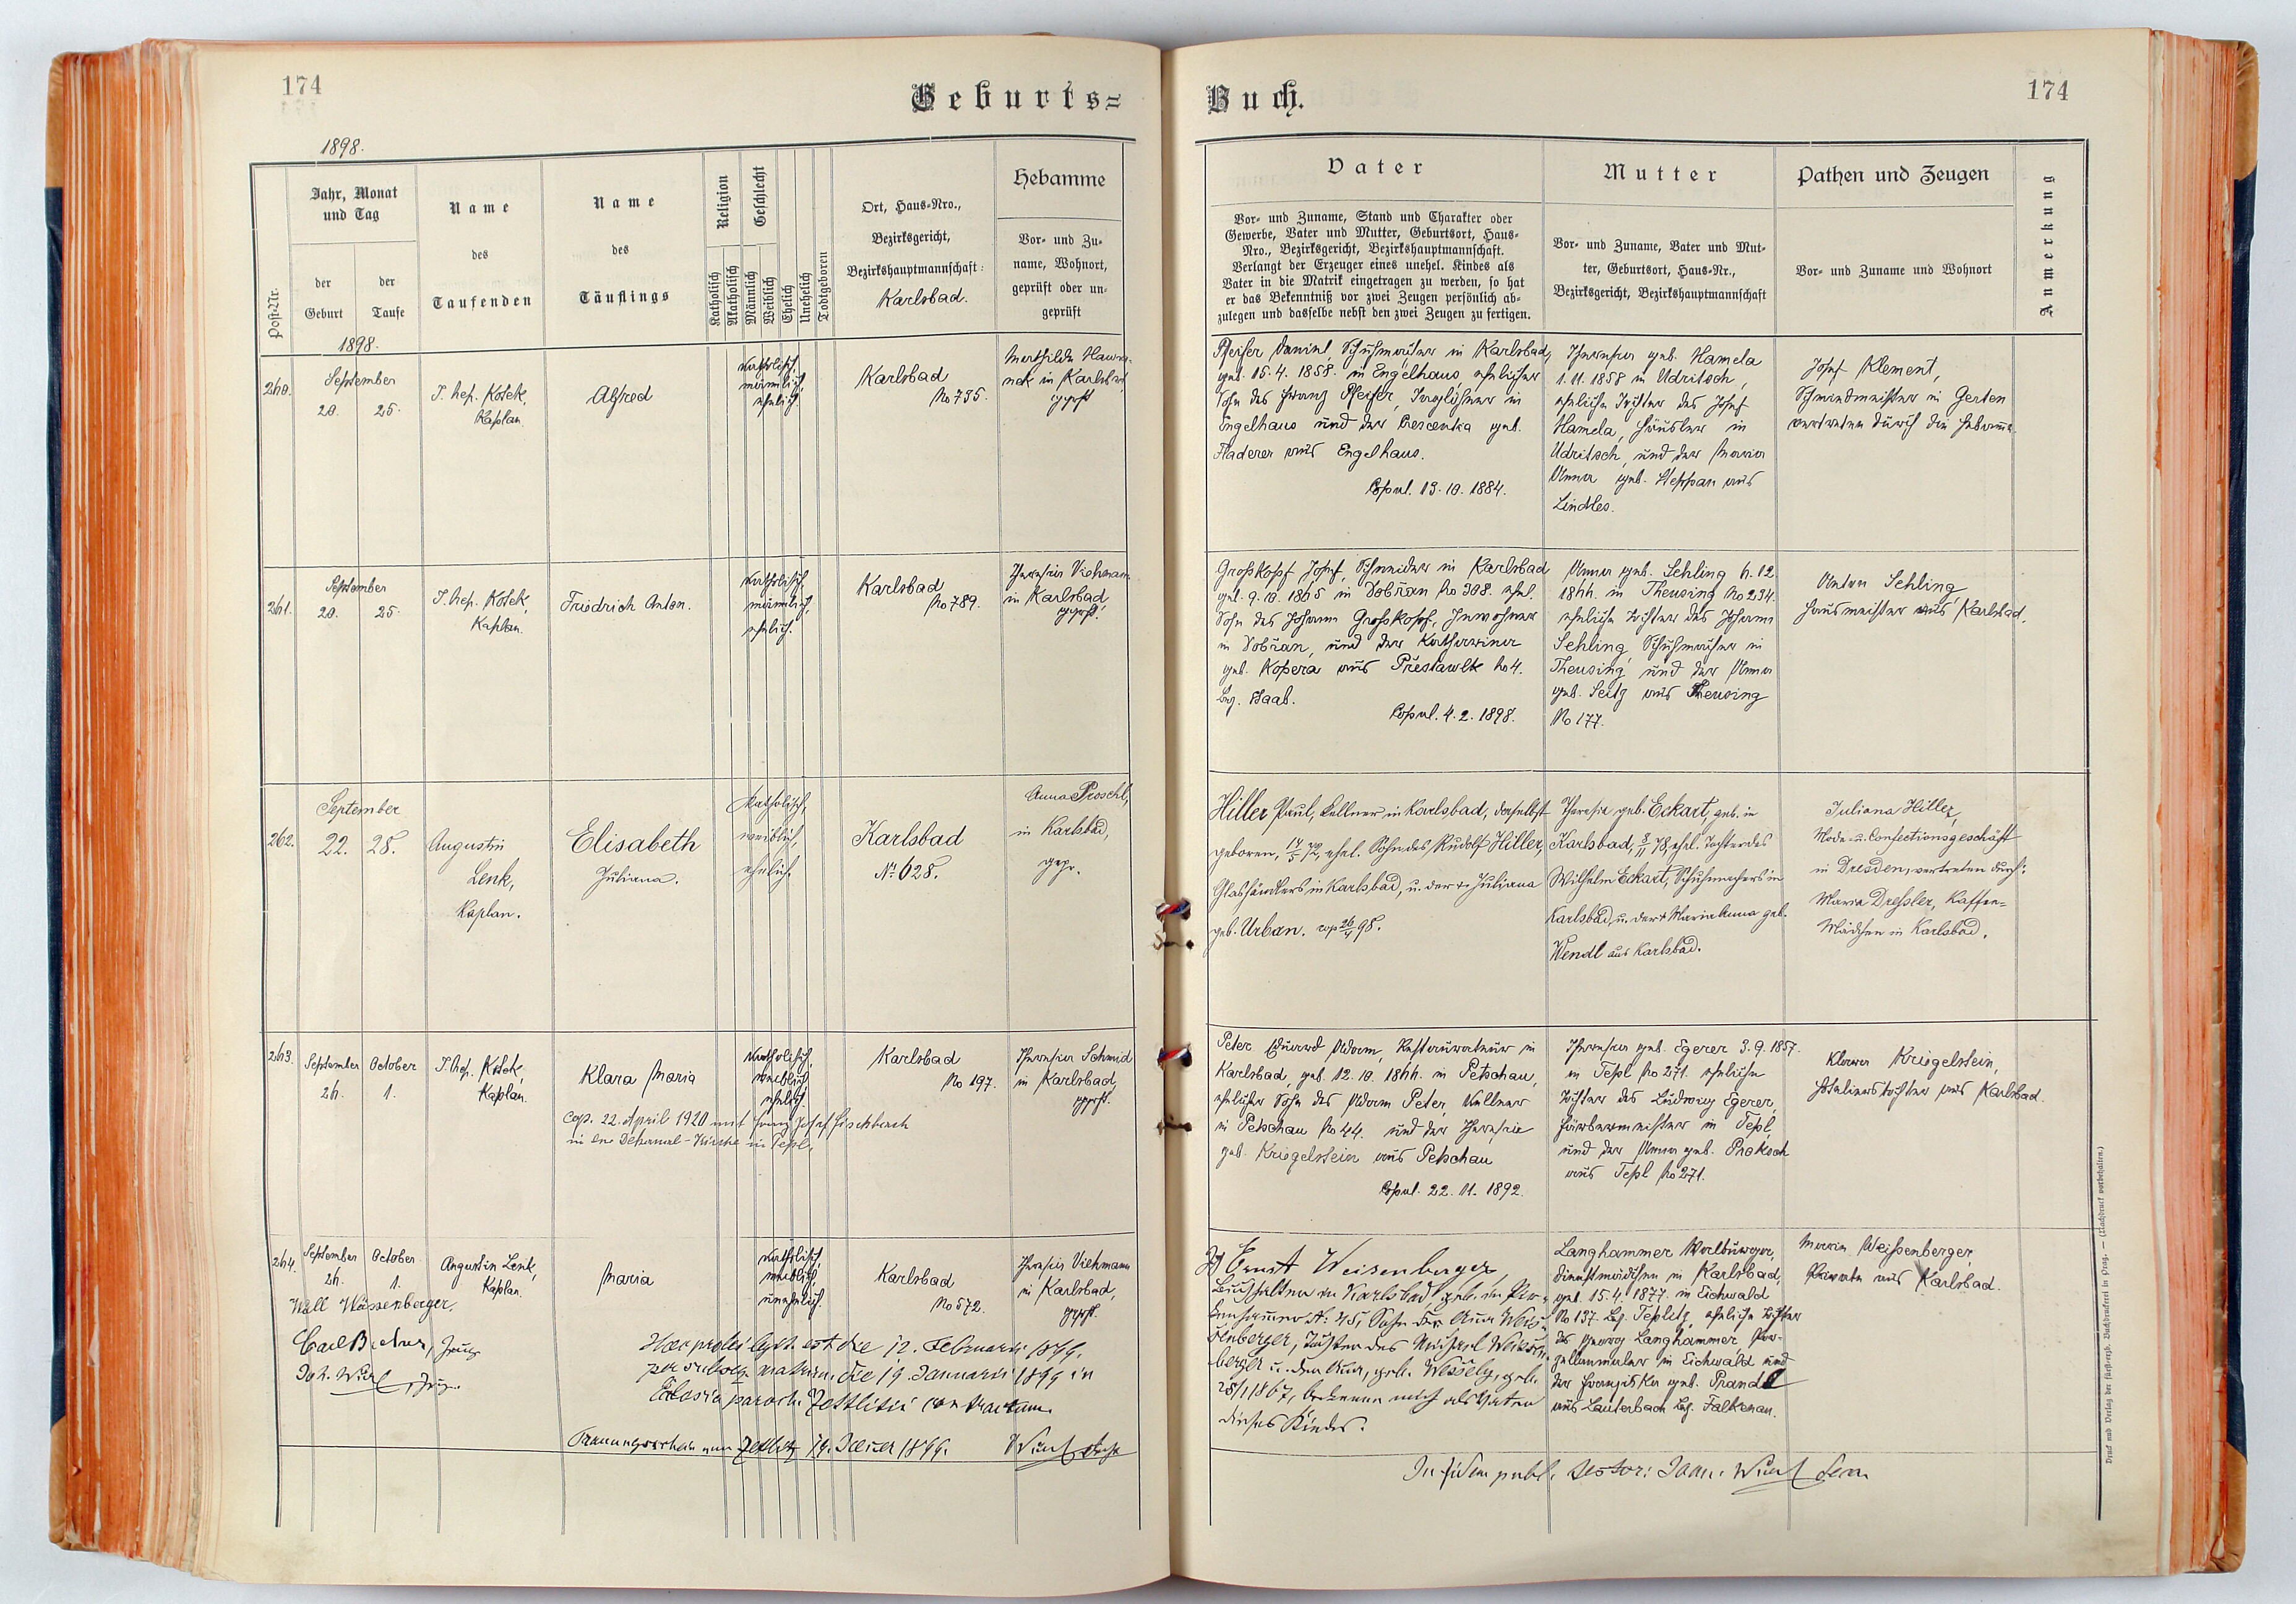 174
Geburts=
1898.
Post-Nr.
Jahr, Monat
und Tag
der
Geburt
der
Taufe
Name
des
Taufenden
Name
des
Täuflings
Religion
Katholisch
Akatholisch
Geschlecht
Männlich
Weiblich
Ehelich
Unehelich
Todtgeboren
Ort, Haus-Nro.,
Bezirksgericht,
Bezirkshauptmannschaft:
Karlsbad.
Hebamme
Vor- und Zu-
name, Wohnort,
geprüft oder un-
geprüft
1898.
260.
September
20. 25.
J. Nep. Kosek,
Kaplan
Alfred
katholisch,
männlich,
ehelich
Karlsbad
No 735.
in Karlsbad
geprft
261.
September
20. 25.
J. Nep. Kosek,
Kaplan.
Friedrich Anton.
katholisch,
männlich,
ehelich.
Karlsbad
No 789.
Theresia Viehmann
in Karlsbad
geprft.
262.
September
22. 28.
Augustin
Lenk,
Kaplan.
Elisabeth
Juliana.
katholisch,
weiblich,
ehelich.
Karlsbad
Nr. 628.
Anna Proschl,
in Karlsbad,
gepr.
263.
September October
26. 1.
J. Nep. Kosek,
Kaplan.
Klara Maria
cop. 22. April 1920 mit Franz Josef Fischbach
in der Dekanal-Kirche in Tepl.
katholisch,
weiblich,
ehelich
Karlsbad
No 197.
Theresia Schmid
in Karlsbad,
geprft.
264.
September October
26. 1.
Augustin Lenk,
Kaplan.
Maria
katholisch,
weiblich,
unehelich.
Karlsbad
No 572.
Theresia Viehmann
in Karlsbad,
geprft.
Joh. Würl, Zeuge.
die 12. Februarii 1899.
die 19. Januarii 1899 in
Ecclesia paroch. Zettlitii contractum.
Trauungsschein von Zettlitz 19. Jänner 1899.
Buch.
174
Vater
Vor- und Zuname, Stand und Charakter oder
Gewerbe, Vater und Mutter, Geburtsort, Haus-
Nro., Bezirksgericht, Bezirkshauptmannschaft.
Verlangt der Erzeuger eines unehel. Kindes als
Vater in die Matrik eingetragen zu werden, so hat
er das Bekenntniß vor zwei Zeugen persönlich ab-
zulegen und dasselbe nebst den zwei Zeugen zu fertigen.
Mutter
Vor- und Zuname, Vater und Mut-
ter, Geburtsort, Haus-Nr.,
Bezirksgericht, Bezirkshauptmannschaft
Pathen und Zeugen
Vor- und Zuname und Wohnort
Anmerkung
Pfeifer Daniel, Schuhmacher in Karlsbad,
geb. 15. 4. 1858. in Engelhaus, ehelicher
Sohn des Franz Pfeifer, Taglöhner in
Engelhaus und der Crescenta geb.
Fladerer aus Engelhaus.
Copul. 13. 10. 1884.
Theresia geb. Hamela
1. 11. 1858 in Udritsch,
eheliche Tochter des Josef
Hamela, Häusler in
Udritsch, und der Maria
Anna geb. Steppan aus
Lindles.
Josef Klement,
Schmiedmeister in Gerten
vertreten durch die Hebamme.
Großkopf Josef, Schneider in Karlsbad
geb. 9. 10. 1865 in Dobřan No 308. ehel.
Sohn des Johann Großkopf, Inwohner
in Dobřan, und der Katharina
geb. Kopera aus Přestawlk No 4.
Bez. Staab.
Copul. 4. 2. 1898.
Anna geb. Sehling 6. 12.
1866. in Theusing No 234.
eheliche Tochter des Johann
Sehling, Schuhmacher in
Theusing und der Anna
geb. Seitz aus Theusing
No 177.
Anton Sehling,
Hausmeister aus Karlsbad.
Hiller Paul, Kellner in Karlsbad, daselbst
geboren, 17/5 72, ehel. Sohn des Rudolf Hiller,
Glashändlers in Karlsbad, u. der + Juliana
geb. Urban. cop 26/4 98.
Theresie geb. Eckart, geb. in
Karlsbad, 8/11 78, ehel. Tochter des
Wilhelm Eckart, Schuhmachers in
Karlsbad, u. der + Maria Anna geb.
Wendl aus Karlsbad.
Juliana Hiller,
Mode- u. Confectionsgeschäft
in Dresden, vertreten durch:
Maria Dreßler, Kaffee-
Mädchen in Karlsbad.
Peter Eduard Adam, Restaurateur in
Karlsbad, geb. 12. 10. 1866. in Petschau,
ehelicher Sohn des Adam Peter, Kellner
in Petschau No 44. und der Theresie
geb. Kriegelstein aus Petschau
Copul. 22. 11. 1892.
Theresia geb. Egerer 3. 9. 1857.
in Tepl No 271. eheliche
Tochter des Ludwig Egerer,
Färbermeister in Tepl,
und der Anna geb. Proksch
aus Tepl No 271.
Klara Kriegelstein,
Hoteliers tochter aus Karlsbad.
Ernst Weisenberger,
Buchhalter in Karlsbad, geb. in
28/1 1867, bekenne mich als Vater
dieses Kindes.
Langhammer Walburga,
Dienstmädchen in Karlsbad,
geb. 15. 4. 1877. in Eichwald
No 137. Bz. Teplitz, eheliche Tochter
des Georg Langhammer, Por-
zellanmaler in Eichwald und
der Franziska geb. Prandl
aus Lauterbach Bz. Falkenau.
Maria Weißenberger,
Private aus Karlsbad.
Druck und Verlag der fürst-erzb. Buchdruckerei in Prag. — (Nachdruck vorbehalten.)